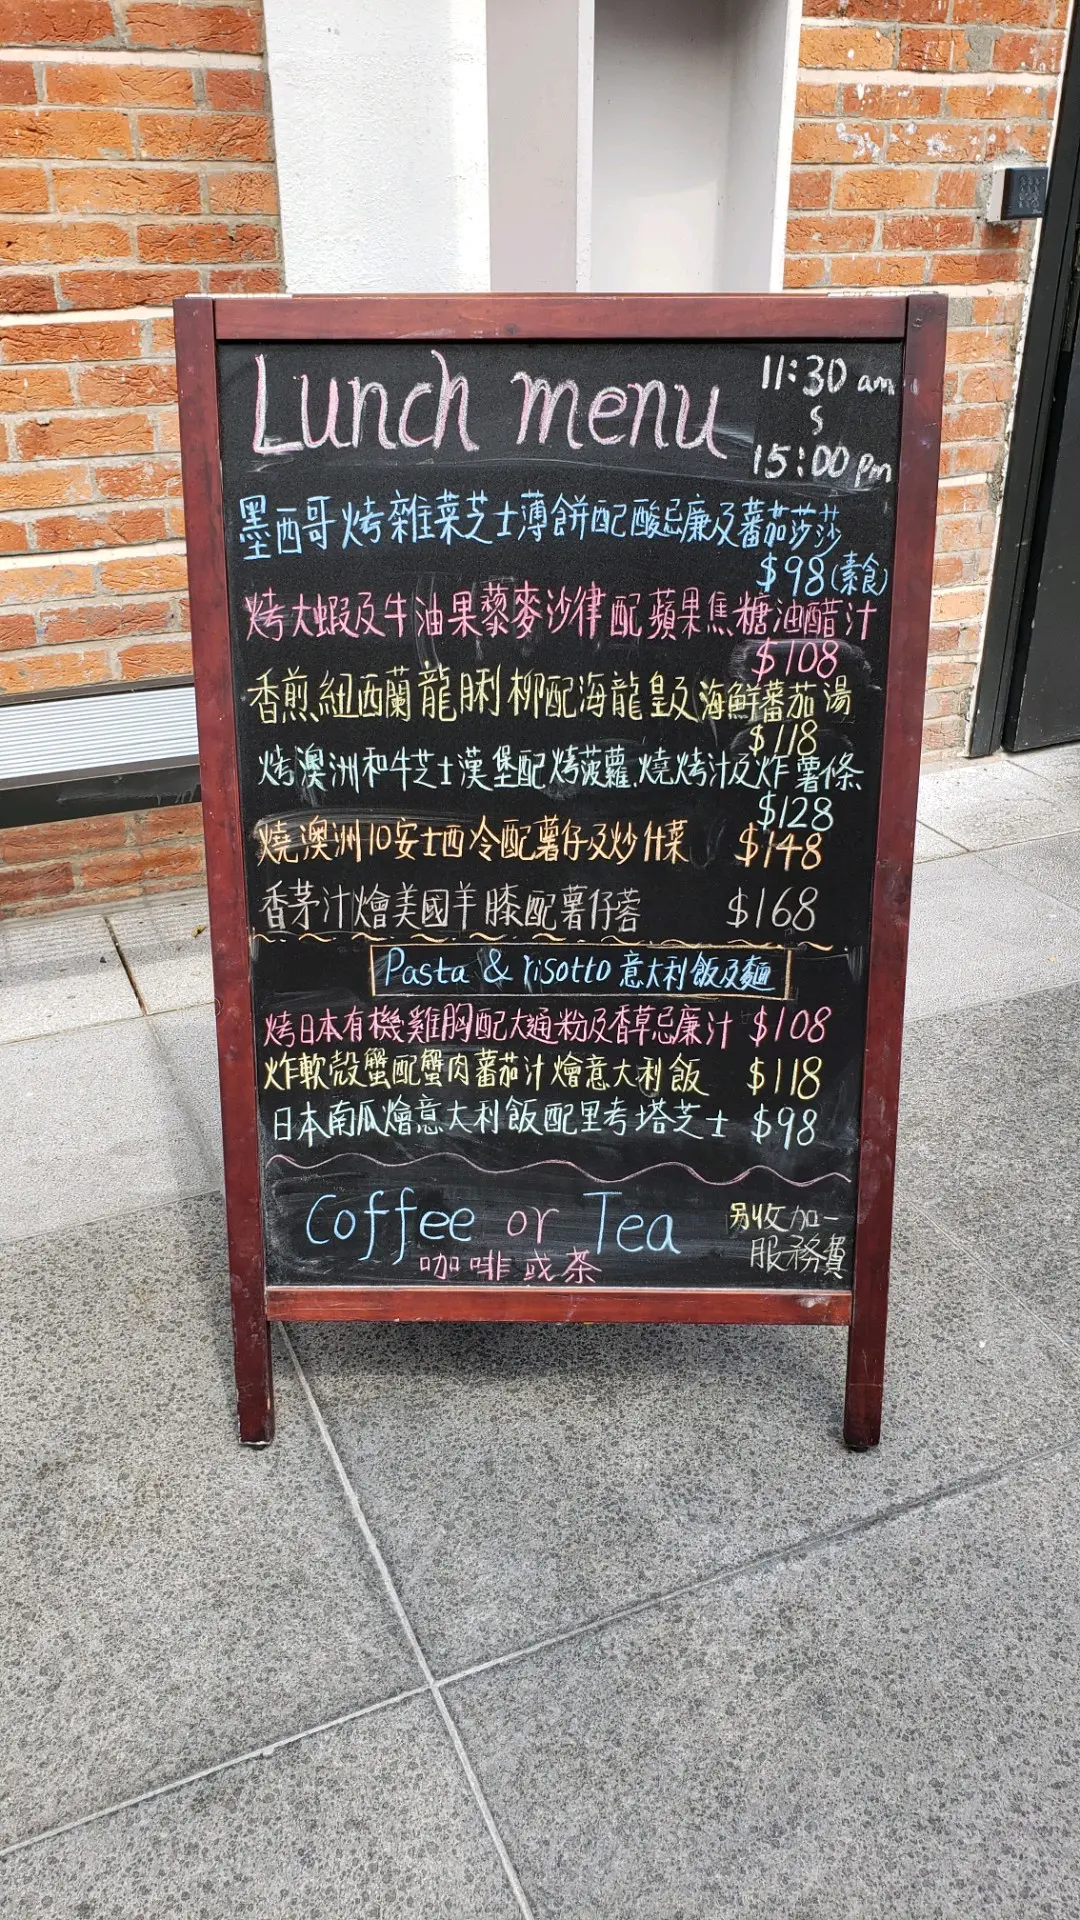 Lunch menu
11:30 am
~
15:00 pm
墨西哥烤雜菜芝士薄餅配酸忌廉及蕃茄莎莎
$98(素食)
烤大蝦及牛油果藜麥沙律配蘋果焦糖油醋汁
$108
香煎紐西蘭龍脷柳配海龍皇及海鮮蕃茄湯
$118
烤澳洲和牛芝士漢堡配烤菠蘿.燒烤汁及炸薯條
$128
燒澳洲10安士西冷配薯仔及炒什菜 $148
香茅汁燴美國羊膝配薯仔蓉 $168
Pasta & risotto 意大利飯及麵
烤日本有機雞胸配大通粉及香草忌廉汁 $108
炸軟殼蟹配蟹肉蕃茄汁燴意大利飯 $118
日本南瓜燴意大利飯配里考塔芝士 $98
Coffee or Tea
咖啡或茶
另收加一
服務費